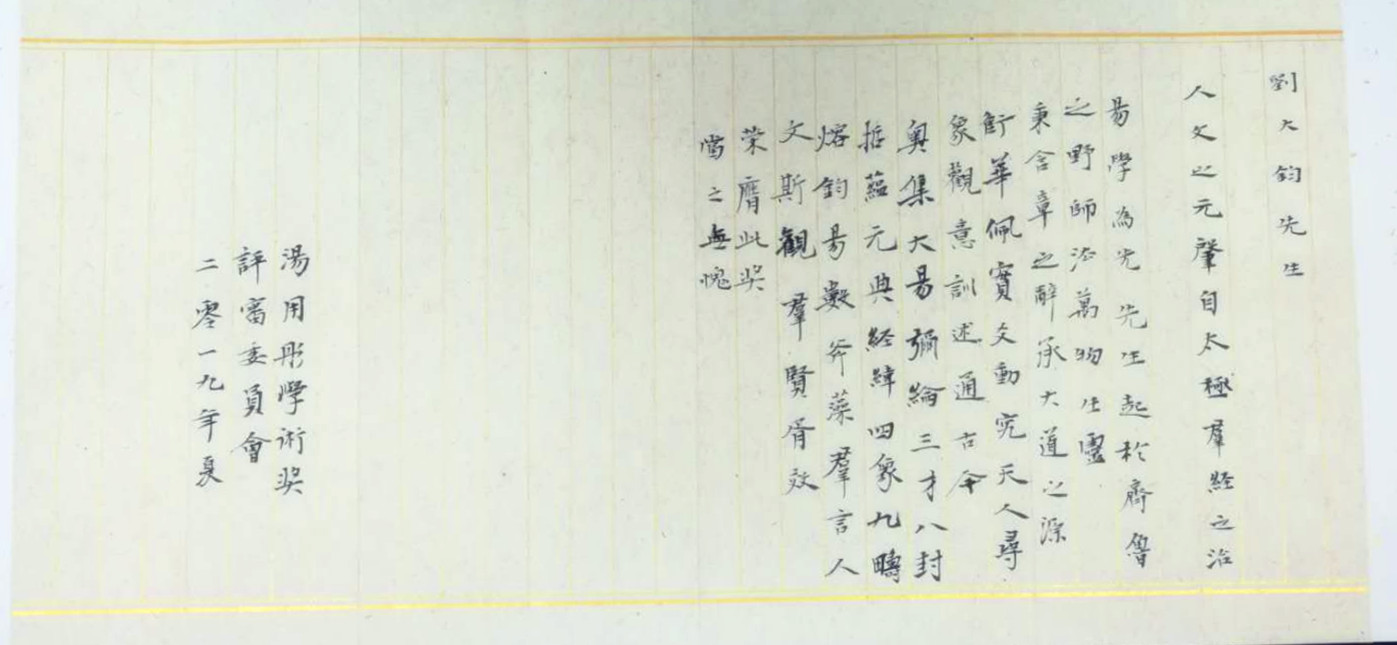 劉大鈞先生
人文之元肇自太極羣經之治
易學為先先生起於齊魯
之野師法萬物生靈
秉含章之辭承大道之源
銜華佩實文動究天人尋
象觀意訓述通古今
奧集大易彌綸三才八封
括蘊元典経緯四象九疇
熔鈞易數斧藻羣言人
文斯觀羣賢胥效
荣膺此奖
當之無愧
湯用彤學術奖
評審委員會
二零一九年夏